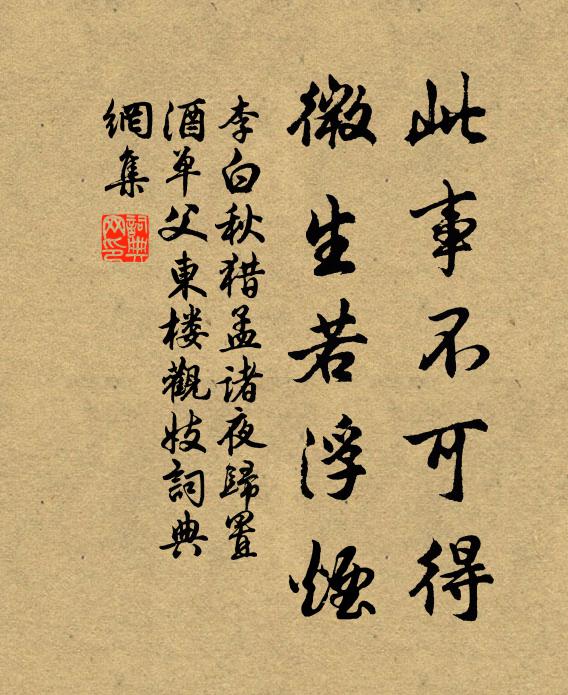 此事不可得
微生若浮煙
李白秋猎孟诸夜歸置
酒单父東楼觀妓詞典
網集
詞典网印